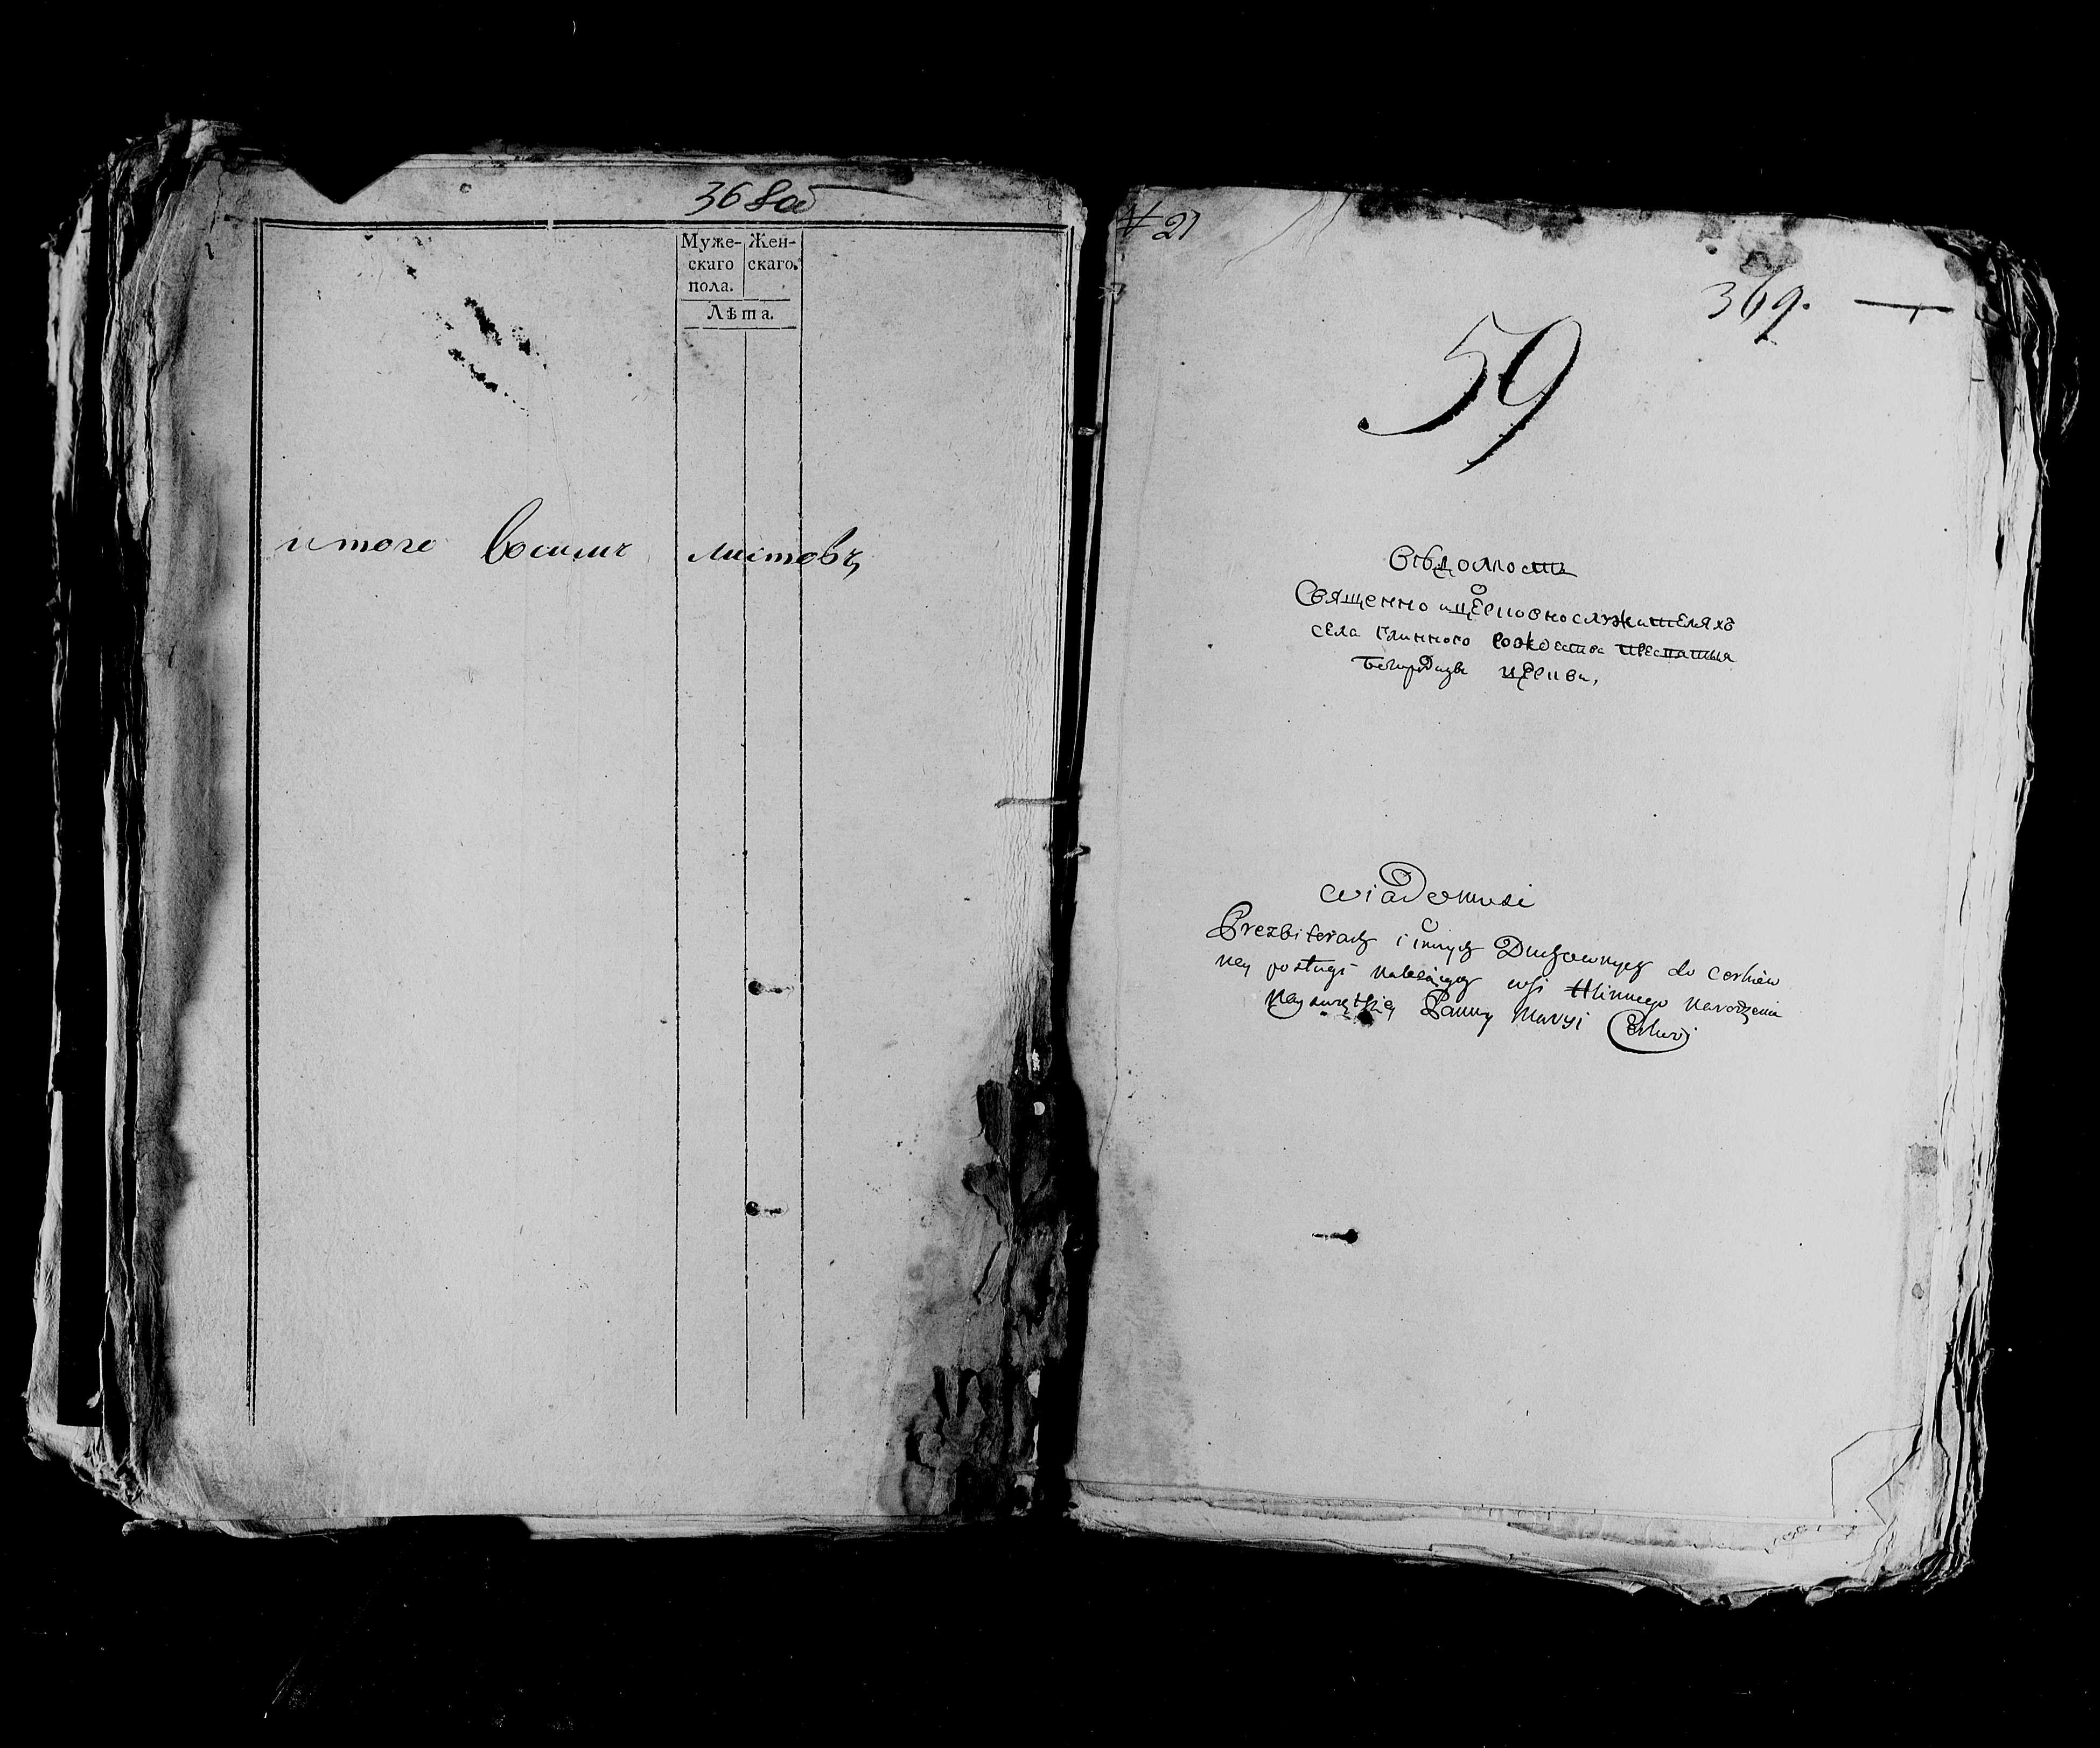 368об
Муже- Жен-
скаго скаго.
пола.
Лѣта.
итого восимъ листовъ
№ 21
369.
59
Вѣдомость
О
Священно и церковнослужителяхъ
села Глинного Рождества Пресвятыя
Богородицы церкви,
Wiadomosc
O
Prezbiterach i innych Duchownych do cerkiew
ney posługi należących wsi Hlinnego Narodzenia
Nayswiętszey Panny Maryi Cerkwi